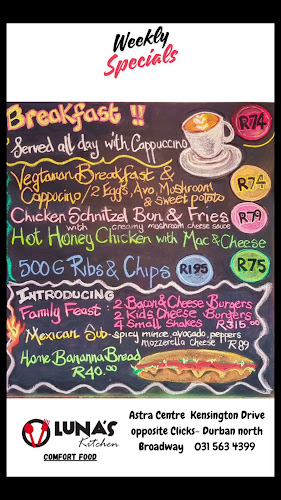 Weekly
Specials
Breakfast !! R74
Served all day with Cappuccino
Vegtarian Breakfast &
Cappucino / 2 Eggs, Avo, Mushroom R74
& sweet potato
Chicken Schnitzel Bun & Fries R79
with creamy mushroom cheese sauce
Hot Honey Chicken with Mac & Cheese
500G Ribs & Chips R195 R75
INTRODUCING
Family Feast: 2 Bacon & Cheese Burgers
2 Kids Cheese Burgers
4 Small Shakes R315.00
Mexican Sub - spicy mince, avocado, peppers
mozzerella cheese R89
Home Bananna Bread
R40.00
LUNA'S
Kitchen
COMFORT FOOD
Astra Centre Kensington Drive
opposite Clicks- Durban north
Broadway 031 563 4399